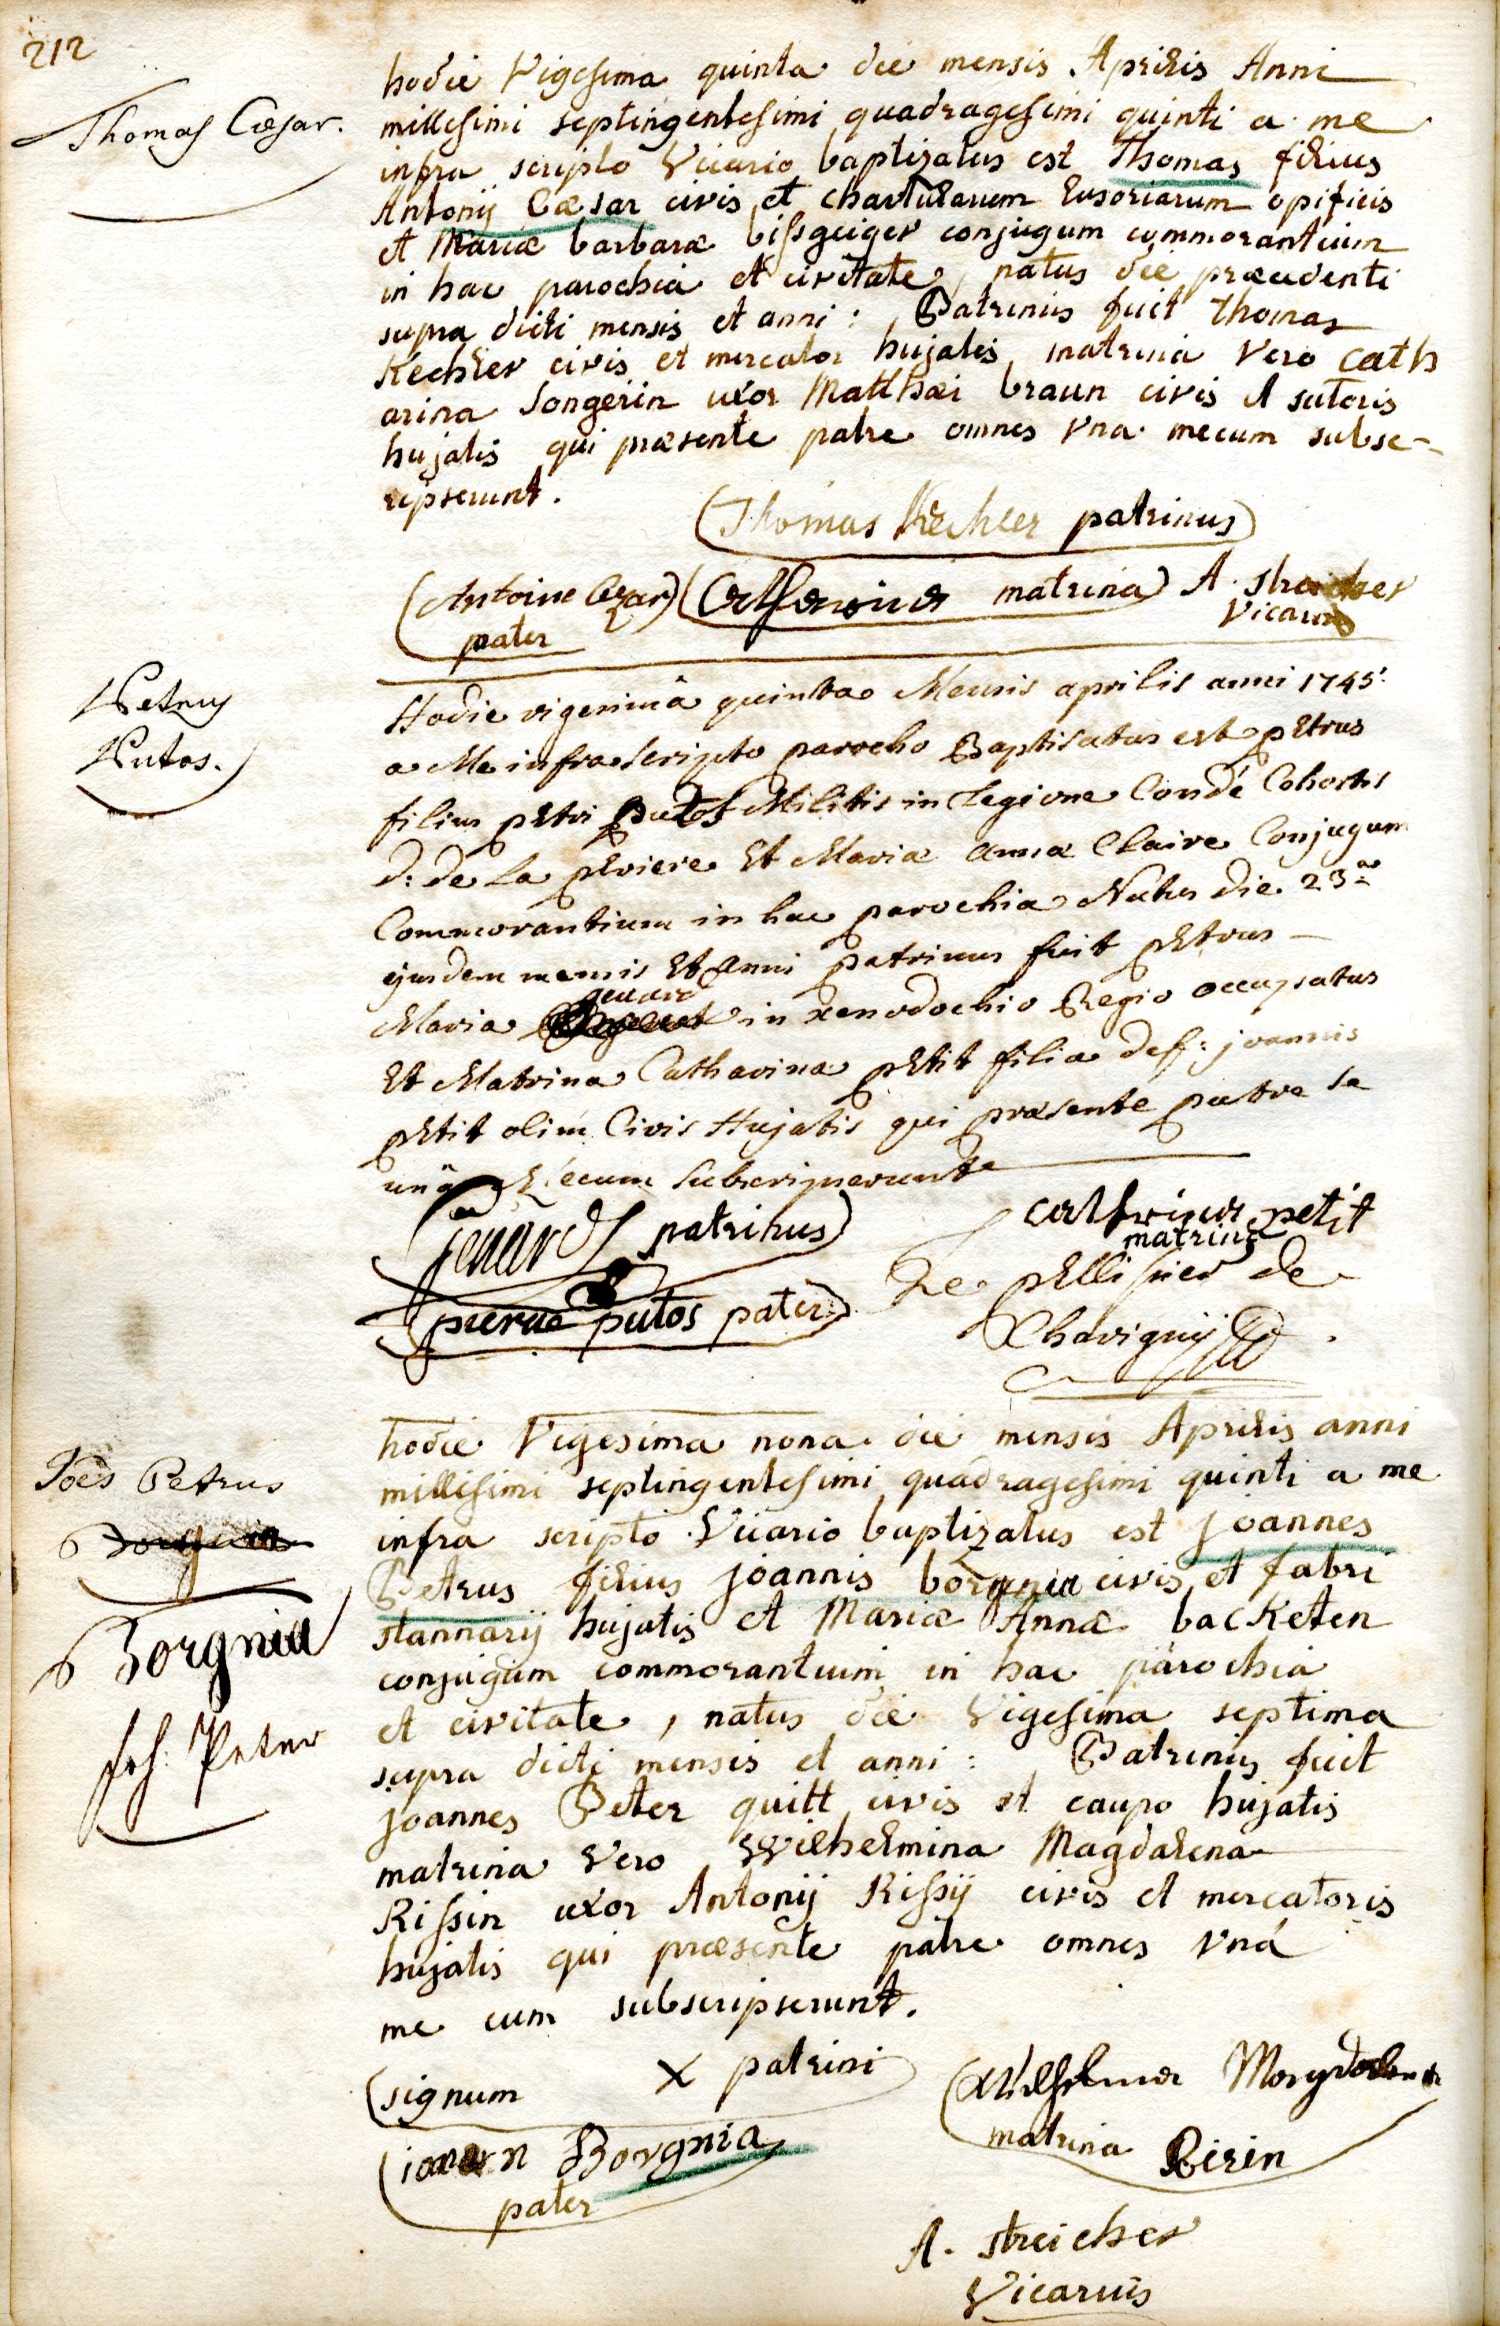 212
Thomas Cæsar.
hodie Vigesima quinta die mensis Aprilis Anni
millesimi septingentesimi quadragesimi quinti a me
infra scripto Vicario baptizatus est Thomas filius
Antonij Cæsar civis et chartularum lusoriarum opificis
et Mariæ barbaræ bissgeiger conjugum commorantium
in hac parochia et civitate, natus die præcedenti
supra dicti mensis et anni: Patrinus fuit Thomas
Kechler civis et mercator hujatis matrina Vero Cath
arina Songerin uxor Matthæi braun civis et sutoris
hujatis qui præsente patre omnes Vna mecum subsc-
ripserunt.
Thomas Kechler patrinus
Antoine Cezar
pater
Catherina matrina
A. Streicher
Vicarius
Petrus
Putos.
Hodie vigesimâ quinta Mensis aprilis anni 1745:
a Me infra Scripto parocho Baptisatus est petrus
filius petri Putos Militis in Legione Condé Cohortis
d: de La periere Et Mariæ annæ Claire Conjugum
Commorantium in hac parochia Natus die 23a
ejusdem mensis Et anni patrinus fuit petrus
jenard
Maria in xenodochio Regio occupatus
Et Matrina Catharina petit filia def: joannis
petit olim Civis Hujatis qui præsente patre se
unâ Mecum Subscripserunt
jenard patrinus
catherina petit
matrina
pierre putos pater
Le pellisier de
Chavignij
Joes Petrus
Borgnia
Joh: Peter
hodie Vigesima nona die mensis Aprilis anni
millesimi septingentesimi quadragesimi quinti a me
infra scripto Vicario baptizatus est joannes
Petrus filius joannis borgnia civis et fabri
stannarij hujatis et Mariæ Annæ backeten
conjugum commorantium in hac parochia
et civitate, natus die Vigesima septima
supra dicti mensis et anni: Patrinus fuit
joannes Peter quitt civis et caupo hujatis
matrina Vero Wilhelmina Magdalena
Rissin uxor Antonij Rissij civis et mercatoris
hujatis qui præsente patre omnes Vná
me cum subscripserunt.
signum X patrini
Wilhelmina Magdalena
matrina Risin
Borgnia
pater
A. Streicher
Vicarius